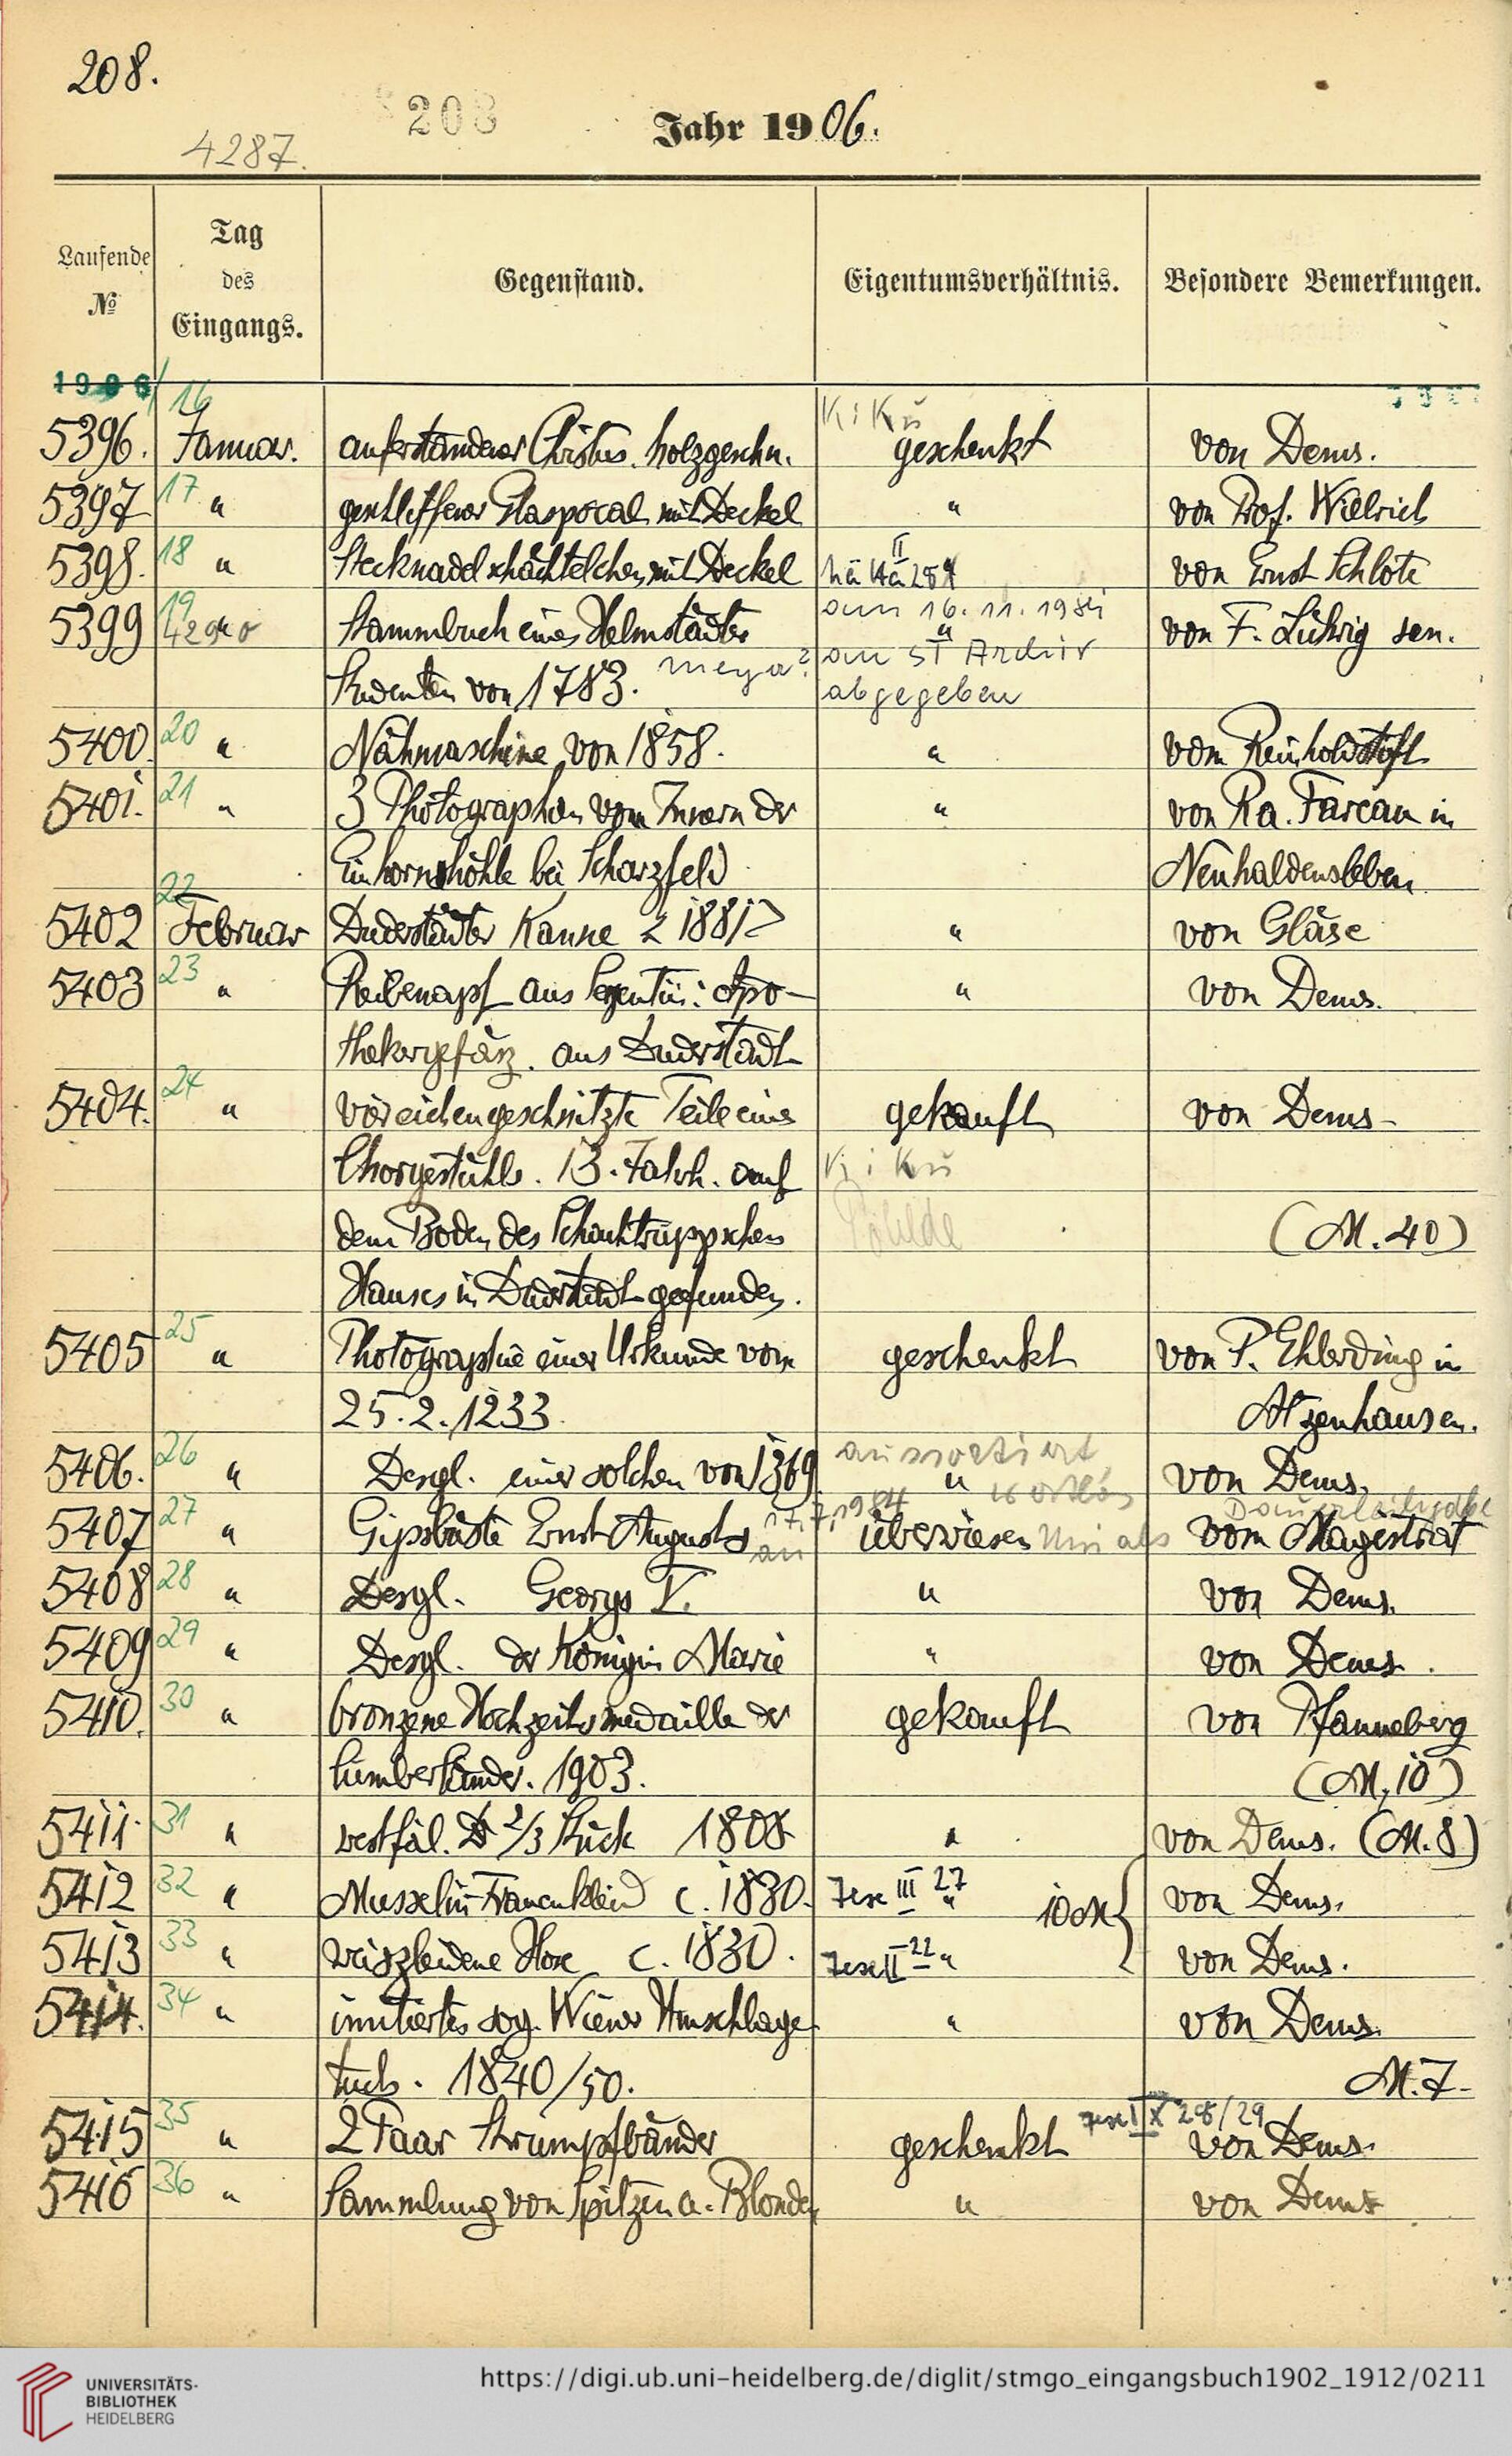 208.
208
Jahr 1906.
4287.
Laufende № Tag des Eingangs. Gegenstand. Eigentumsverhältnis. Besondere Bemerkungen.
1906/
16 KiKü
5396. Januar. auferstandener Christus. holzgeschn. geschenkt von Dems.
5397 17 " geschliffener Glaspocal mit Deckel " von Prof. Willrich
5398. 18 " Stecknadelschächtelchen mit Deckel II von Ernst Schlote
5399 19 4290 Stammbuch eines Helmstädter am 16.11.1984 " von F. Lührig sen.
Studenten von 1783. an St Archiv
abgegeben
5400. 20 " Nähmaschine von 1858. " vom Reinholdstift
5401. 21 " 3 Photographien vom Innern der " von Ra. in
Einhornhöhle bei Scharzfeld Neuhaldensleben
5402 22 Februar Duderstädter Kanne < 1881> " von Gläse
5403 23 " Reibenapf aus Serpentin: Apo- " von Dems.
thekergefäsz. aus Duderstadt
5404. 24 " vier eichengeschnitzte Teile eines gekauft von Dems-
Chorgestühls. 13. Jahrh. auf KiKü
dem Boden des Schachtruppschen Pöhlde (M. 40)
Hauses in Duderstadt gefunden.
5405 25 " Photographie einer Urkunde vom geschenkt von P. Ehlerding in
25.2.1233. Atzenhausen.
5406. 26 " Desgl. einer solchen von 1369 aussortiert " wertlos von Dems.
5407 27 " Gipsbüste Ernst Augusts 17.7.1984 an überwiesen Uni als Dauerleihgabe vom Magistrat
5408 28 " Desgl. Georgs V. " von Dems.
5409 29 " Desgl. der Königin Marie " von Dems.
5410. 30 " bronzene Hochzeitsmedaille der gekauft von Pfanneberg
Cumberländer. 1903. (M. 10)
5411. 31 " westfäl. 2/3 Stück 1808 " von Dems. (M. 8)
5412 32 " Musselin-Frauenkleid c. 1830. III 27 " 100M { von Dems.
5413 33 " weiszleidene Hose c. 1830. II 22 " von Dems.
5414. 34 " imitiertes sog. Wiener Umschlage " von Dems.
tuch. 1840/50. M. 7-
IX 28/29
5415 35 " 2 Paar Strumpfbänder geschenkt von Dems.
5416 36 " Sammlung von Spitzen u. Blonden " von Dems
UNIVERSITÄTS-
BIBLIOTHEK
HEIDELBERG
https://digi.ub.uni-heidelberg.de/diglit/stmgo_eingangsbuch1902_1912/0211